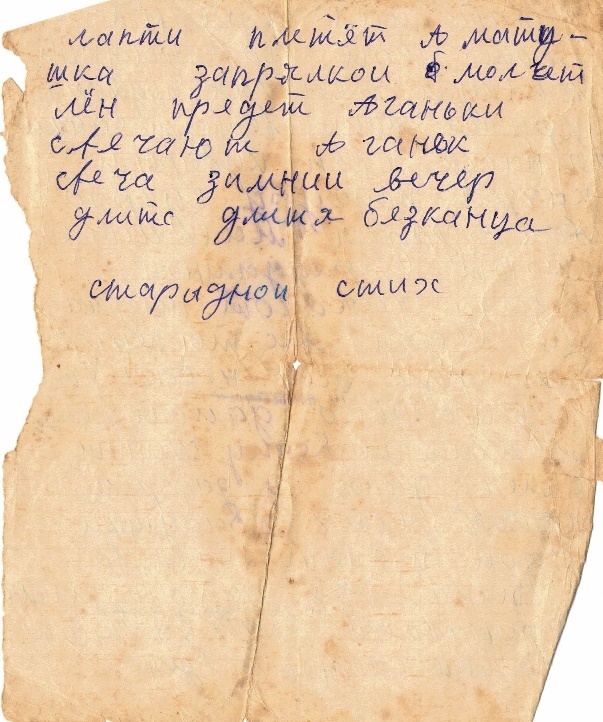 лапти плетят А мату-
шка запрялкои б молчет
лён прядет Аганьки
свечают А ганёк
свеча зимнии вечер
длитс длитя бязканца
старыднои стих